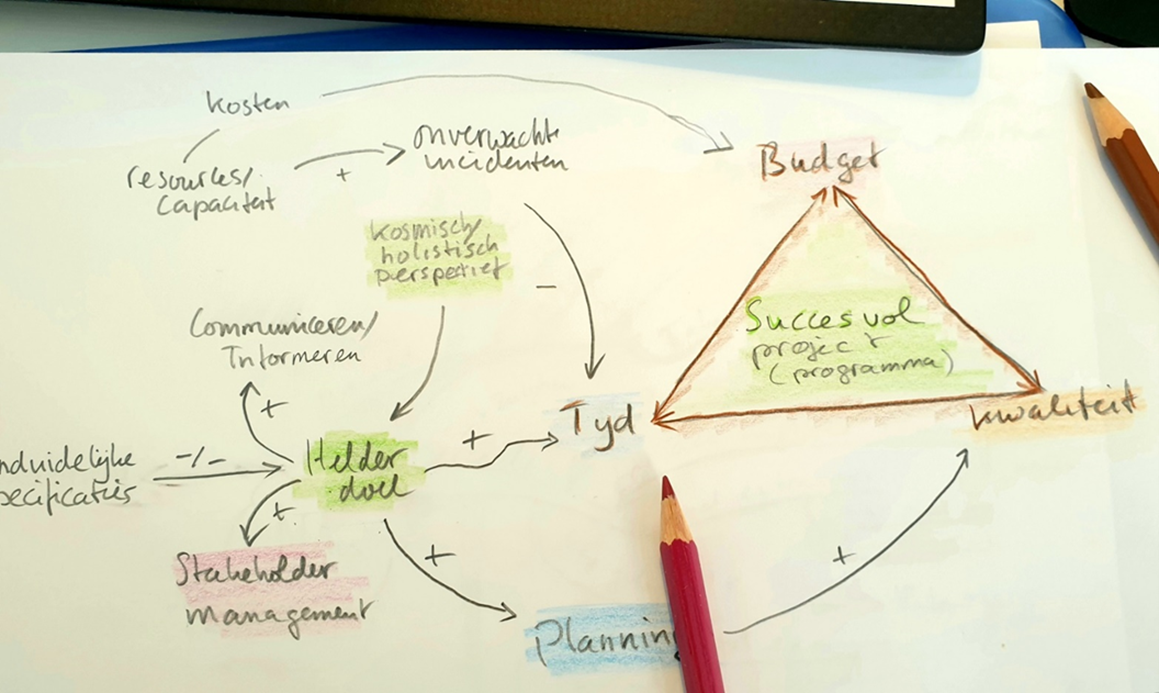 kosten
resources/
capaciteit
+
onverwachte
incidenten
Budget
kosmisch/
holistisch
perspectief
-
Succesvol
project
(programma)
Communiceren/
Informeren
+
Tyd
kwaliteit
nduidelijke
pecificaties
-/-
Helder
doel
+
+
Stakeholder
management
+
Planning
+